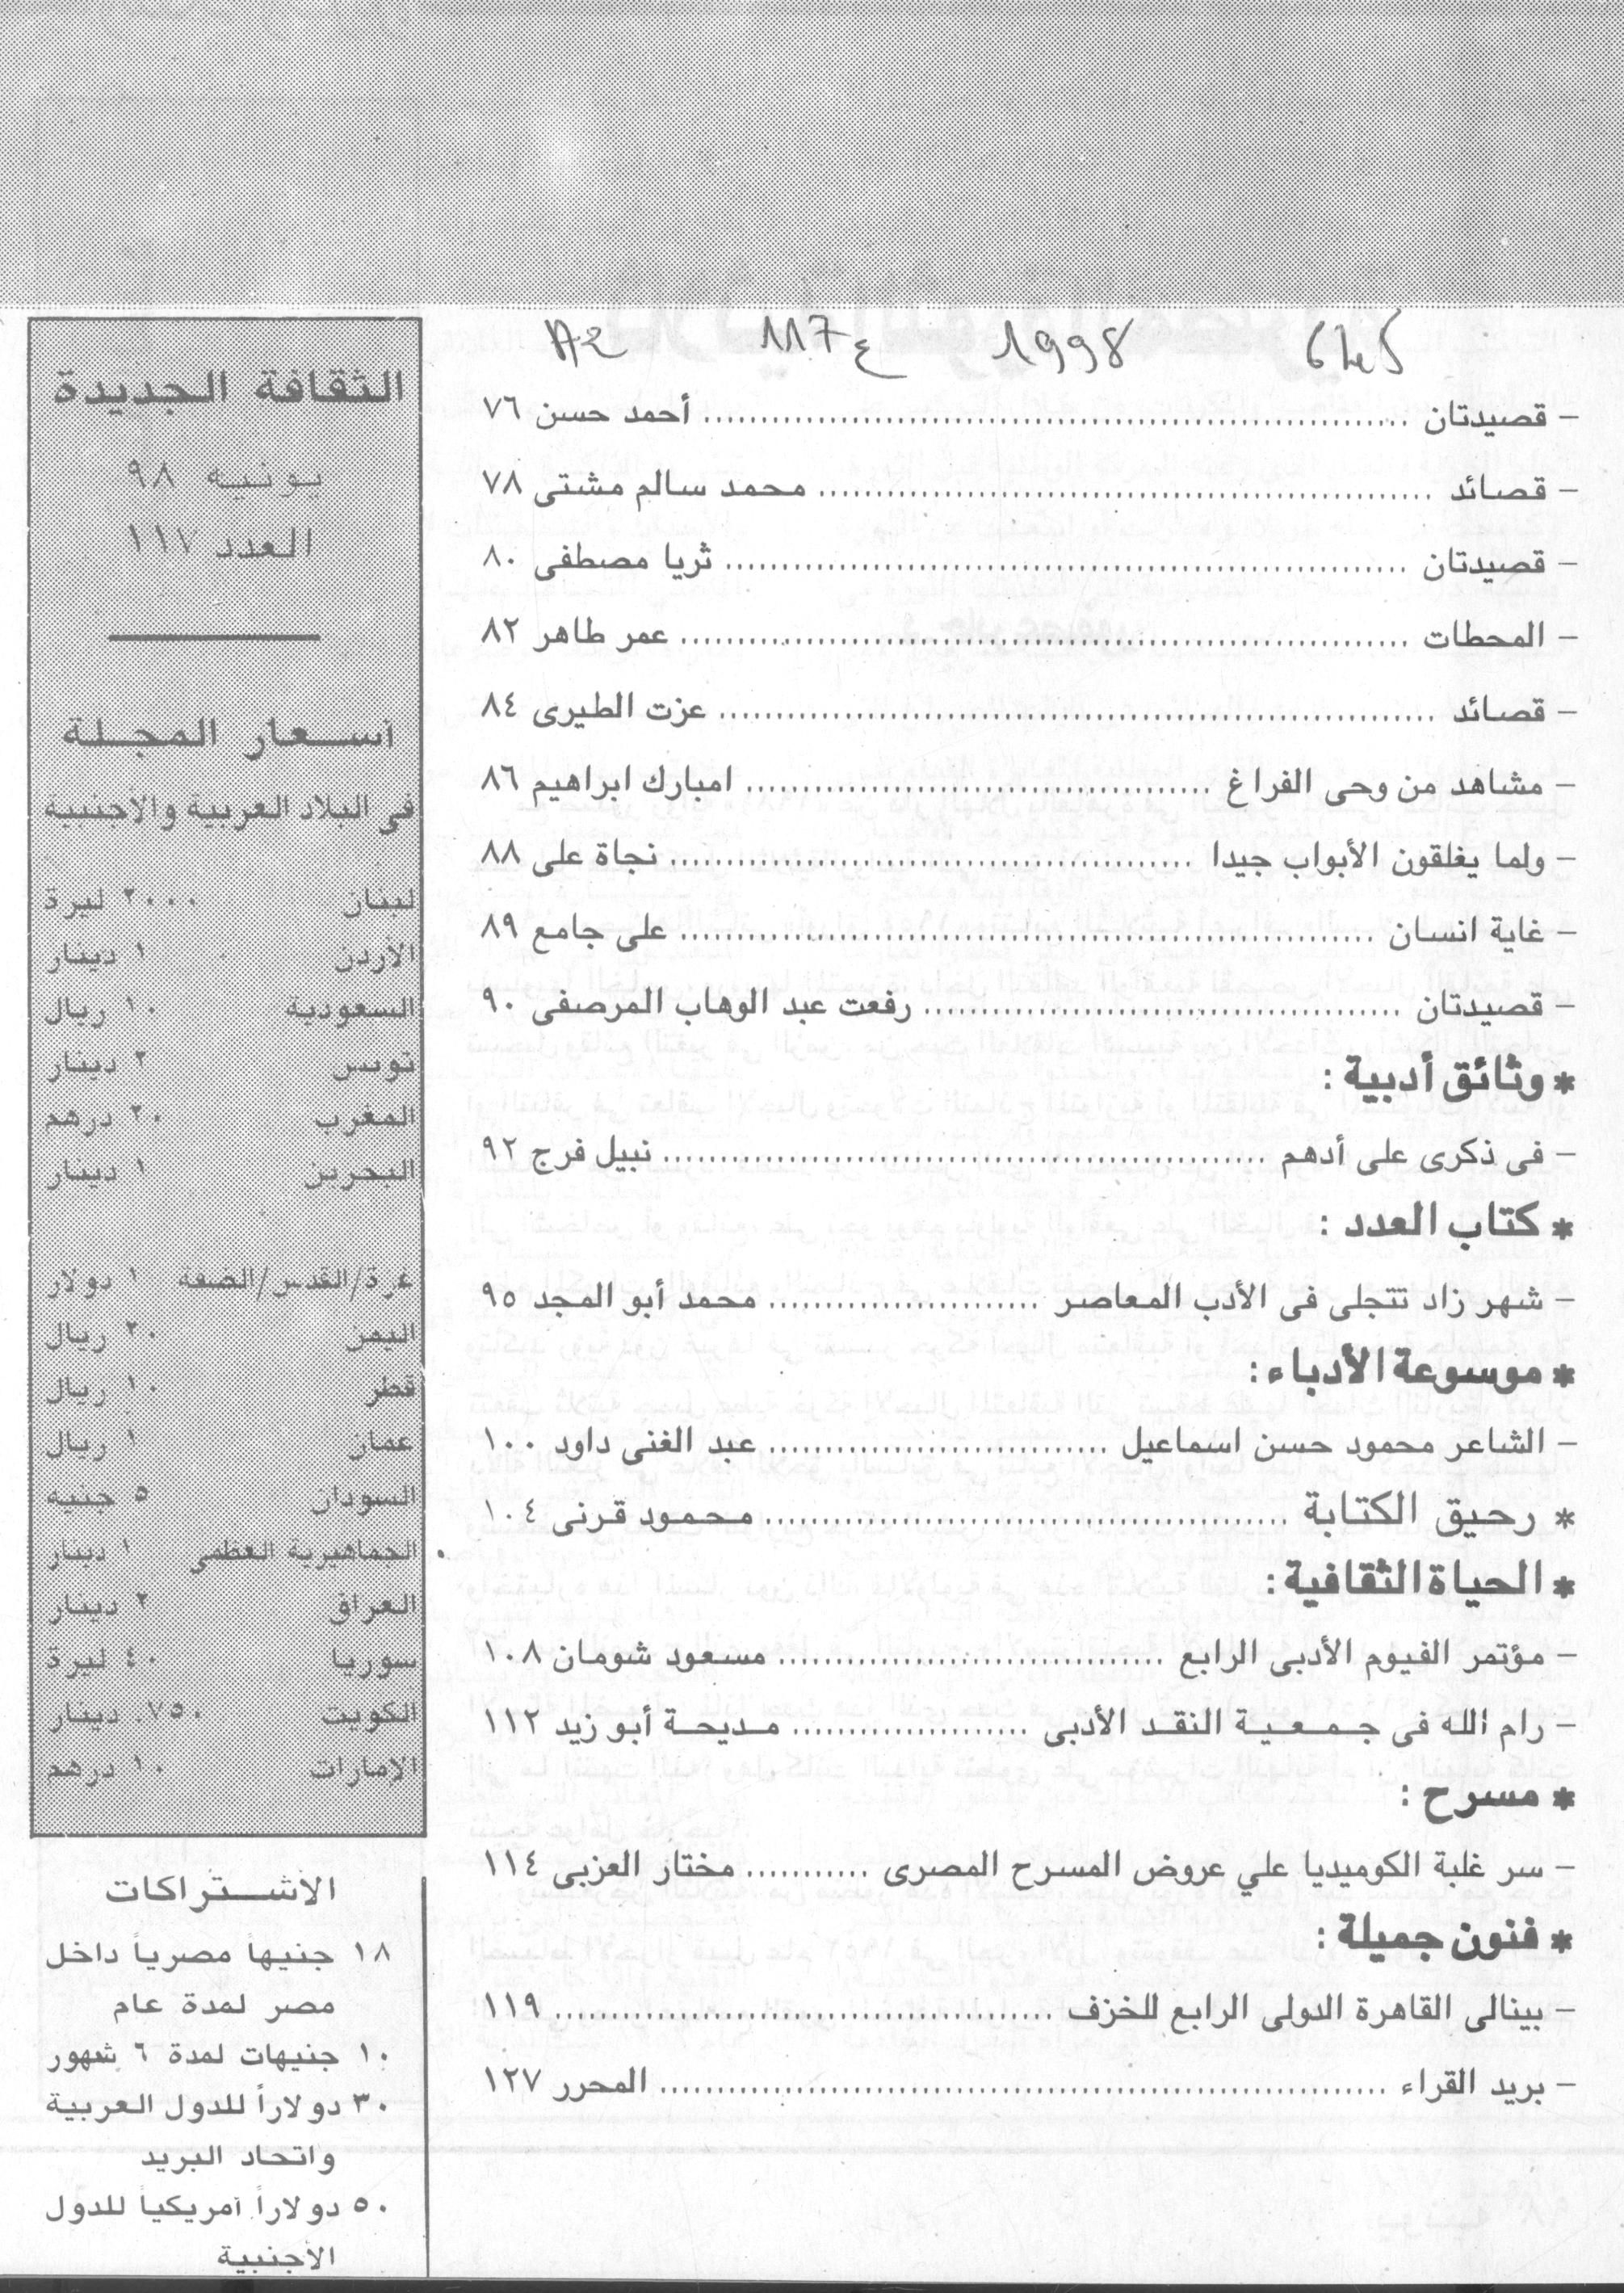 1998
117 ع
A2
- قصيدتان ........ أحمد حسن ٧٦
- قصائد ........ محمد سالم مشتى ٧٨
- قصيدتان ........ ثريا مصطفى ٨٠
- المحطات ........ عمر طاهر ٨٢
- قصائد ........ عزت الطيرى ٨٤
- مشاهد من وحى الفراغ ........ امبارك ابراهيم ٨٦
- ولما يغلقون الأبواب جيدا ........ نجاة على ٨٨
- غاية انسان ........ على جامع ٨٩
- قصيدتان ........ رفعت عبد الوهاب المرصفى ٩٠
* وثائق أدبية :
- فى ذكرى على أدهم ........ نبيل فرج ٩٢
* كتاب العدد :
- شهر زاد تتجلى فى الأدب المعاصر ........ محمد أبو المجد ٩٥
* موسوعة الأدباء :
- الشاعر محمود حسن اسماعيل ........ عبد الغنى داود ١٠٠
* رحيق الكتابة ........ محمود قرنى ١٠٤
* الحياة الثقافية :
- مؤتمر الفيوم الأدبى الرابع ........ مسعود شومان ١٠٨
- رام الله فى جمعية النقد الأدبى ........ مديحة أبو زيد ١١٢
* مسرح :
- سر غلبة الكوميديا علي عروض المسرح المصرى ........ مختار العزبى ١١٤
* فنون جميلة :
- بينالى القاهرة الدولى الرابع للخزف ........ ١١٩
- بريد القراء ........ المحرر ١٢٧
الثقافة الجديدة
يونيه ٩٨
العدد ١١٧
أسعار المجلة
فى البلاد العربية والأجنبية
لبنان ٢٠٠٠ ليرة
الأردن ١ دينار
السعودية ١٠ ريال
تونس ٢ دينار
المغرب ٢٠ درهم
البحرين ١ دينار
غزة/القدس/الضفة ١ دولار
اليمن ٢٠ ريال
قطر ١٠ ريال
عمان ١ ريال
السودان ٥ جنيه
الجماهيرية العظمى ١ دينار
العراق ٢ دينار
سوريا ٤٠ ليرة
الكويت ٧٥٠. دينار
الإمارات ١٠ درهم
الاشتراكات
١٨ جنيهاً مصرياً داخل
مصر لمدة عام
١٠ جنيهات لمدة ٦ شهور
٣٠ دولاراً للدول العربية
واتحاد البريد
٥٠ دولاراً أمريكياً للدول
الأجنبية